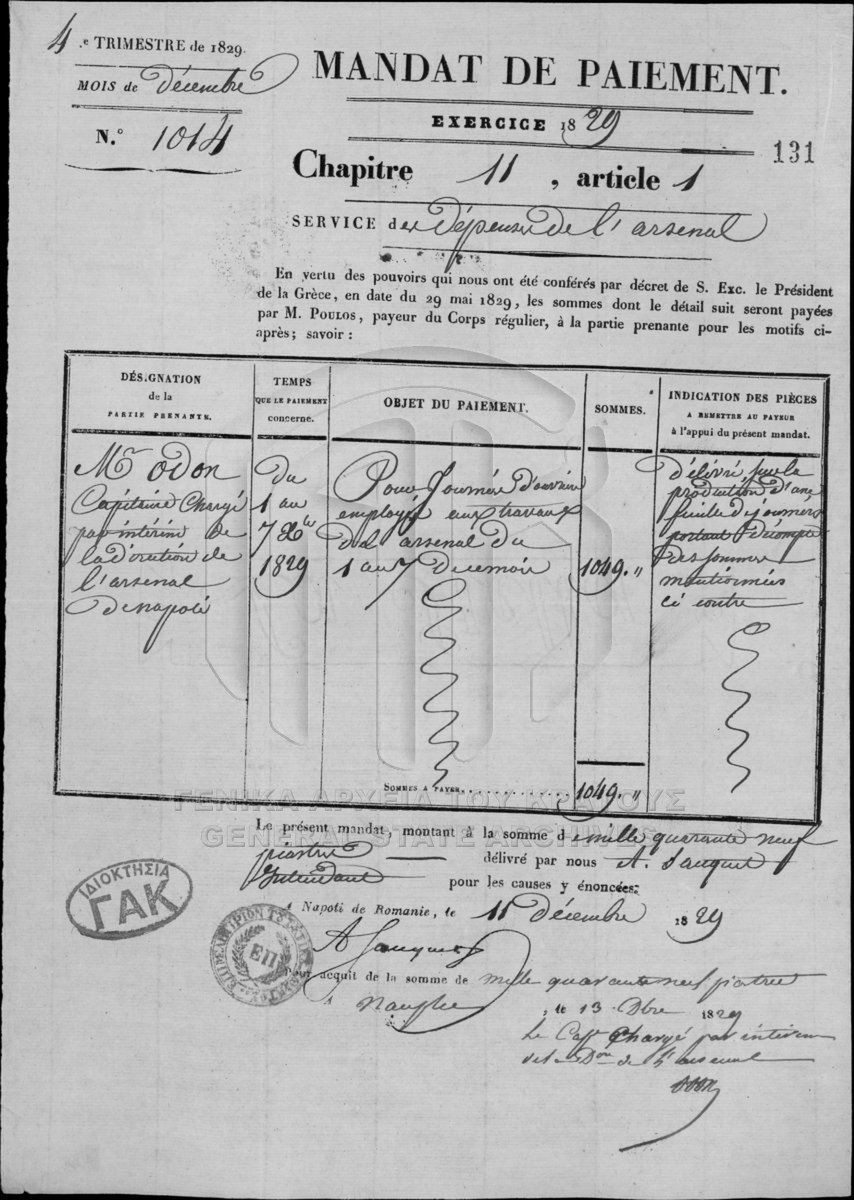 4.e TRIMESTRE de 1829.
MOIS de décembre
N.o 1014
MANDAT DE PAIEMENT.
EXERCICE 1829
131
Chapitre 11, article 1
SERVICE des Dépenses de l'arsenal
En vertu des pouvoirs qui nous ont été conférés par décret de S. Exc. le Président
de la Grèce, en date du 29 mai 1829, les sommes dont le détail suit seront payées
par M. POULOS, payeur du Corps régulier, à la partie prenante pour les motifs ci-
après; savoir :
DÉSIGNATION
de la
PARTIE PRENANTE.
TEMPS
QUE LE PAIEMENT
concerne.
OBJET DU PAIEMENT.
SOMMES.
INDICATION DES PIÈCES
A REMETTRE AU PAYEUR
à l'appui du présent mandat.
Mr odon
Capitaine Chargé
par intérim de
la direction de
l'arsenal
de napoli
Du
1 au
7 Xbre
1829
Pour Journée d'ouvriers
employés aux travaux
de l'arsenal du
1 au 7 Decembre
1049. "
délivré sur la
production d'une
feuille de journées
portant décompte
des sommes
mentionnées
ci contre
SOMMES A PAYER. 1049. "
ΓΕΝΙΚΑ ΑΡΧΕΙΑ ΤΟΥ ΚΡΑΤΟΥΣ
GENERAL STATE ARCHIVES
Le présent mandat, montant à la somme de mille quarante neuf
piastres délivré par nous A. Sauquet
Intendant pour les causes y énoncées;
A Napoli de Romanie, le 11 décembre 1829
ΙΔΙΟΚΤΗΣΙΑ
ΓΑΚ
ΕΠ
Pour acquit de la somme de mille quarante neuf piastres
A Nauplie, le 13 Dbre 1829
Le Capne Chargé par interim
de la Don de l'arsenal
odon